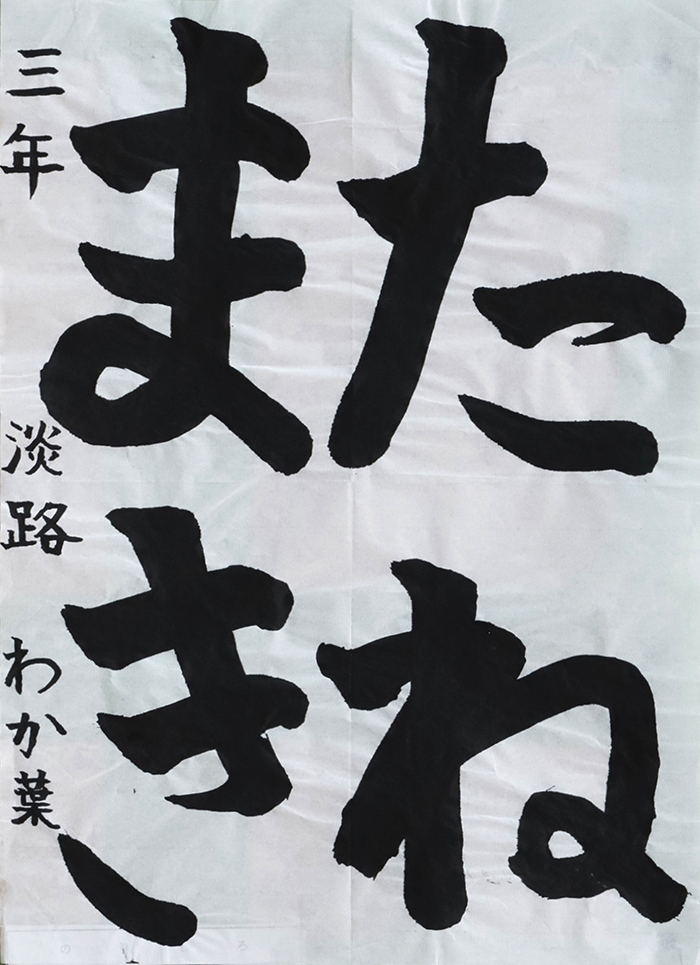 たね
まき
三年 淡路 わか葉